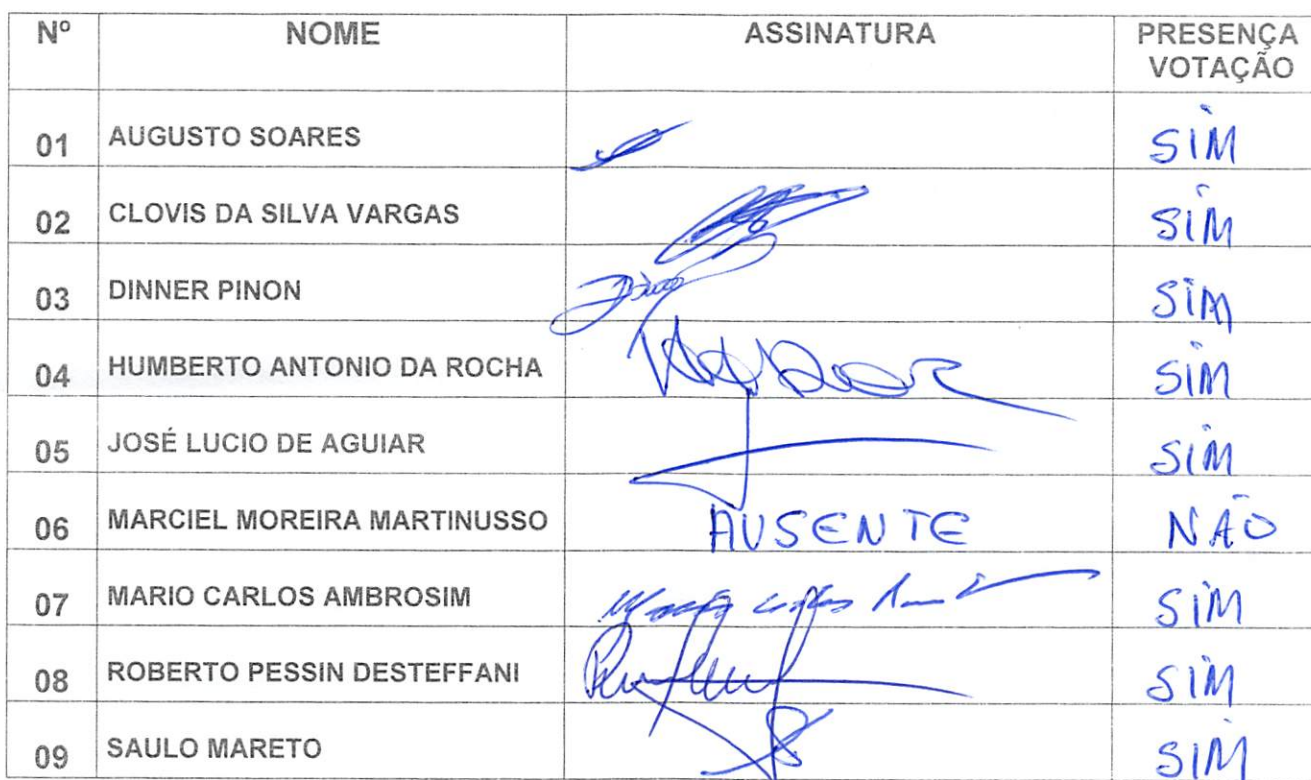 Nº NOME ASSINATURA PRESENÇA
VOTAÇÃO
01 AUGUSTO SOARES SIM
02 CLOVIS DA SILVA VARGAS SIM
03 DINNER PINON SIM
04 HUMBERTO ANTONIO DA ROCHA SIM
05 JOSÉ LUCIO DE AGUIAR SIM
06 MARCIEL MOREIRA MARTINUSSO AUSENTE NÃO
07 MARIO CARLOS AMBROSIM SIM
08 ROBERTO PESSIN DESTEFFANI SIM
09 SAULO MARETO SIM